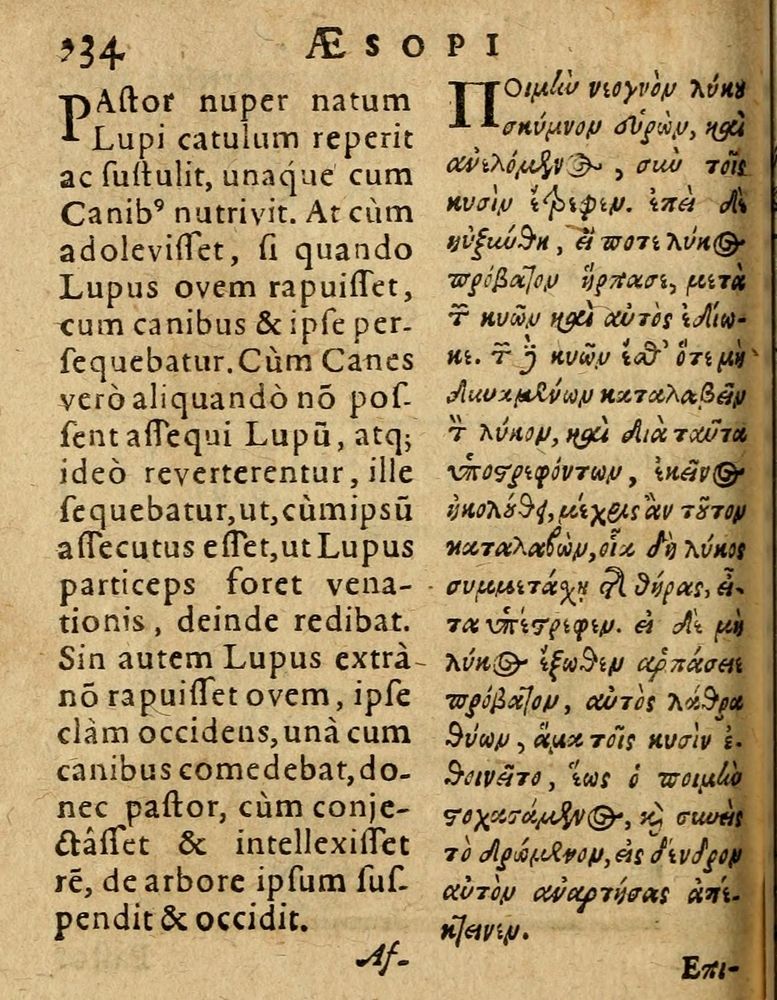 334 ÆSOPI
PAſtor nuper natum
Lupi catulum reperit
ac ſuſtulit, unaque cum
Canibꝰ nutrivit. At cùm
adoleviſſet, ſi quando
Lupus ovem rapuiſſet,
cum canibus & ipſe per-
ſequebatur. Cùm Canes
verò aliquandò nō poſ-
ſent aſſequi Lupū, atq;
ideò reverterentur, ille
ſequebatur, ut, cùm ipſū
aſſecutus eſſet, ut Lupus
particeps foret vena-
tionis, deinde redibat.
Sin autem Lupus extrà
nō rapuiſſet ovem, ipſe
clàm occidens, unà cum
canibus comedebat, do-
nec paſtor, cùm conje-
ctâſſet & intellexiſſet
rē, de arbore ipſum ſuſ-
pendit & occidit.
Af-
ΠΟιμὼ νεογνὸν λύκου
σκύμνον εὑρὼν, καὶ
ἀνελόμενος, σὺν τοῖς
κυσὶν ἔτρεφεν. ἐπεὶ δὲ
ηὐξήθη, εἴ ποτε λύκος
πρόβατον ἥρπασε, μετὰ
τῶν κυνῶν καὶ αὐτὸς ἐδίω-
κε. τῶν δὲ κυνῶν ἔσθ' ὅτε μὴ
δυναμένων καταλαβεῖν
τὸν λύκον, καὶ διὰ ταῦτα
ὑποστρεφόντων, ἐκεῖνος
ἠκολούθει, μέχρις ἂν τοῦτον
καταλαβὼν, οἷα δὴ λύκος
συμμετάσχῃ τῆς θήρας, εἶ-
τα ὑπέστρεφεν. εἰ δὲ μὴ
λύκος ἔξωθεν ἁρπάσειε
πρόβατον, αὐτὸς λάθρα
θύων, ἅμα τοῖς κυσὶν ἐ-
θοινεῖτο, ἕως ὁ ποιμὼ
στοχασάμενος, καὶ συνεὶς
τὸ δρώμενον, εἰς δένδρον
αὐτὸν ἀναρτήσας ἀπέ-
κτεινεν.
Επι-